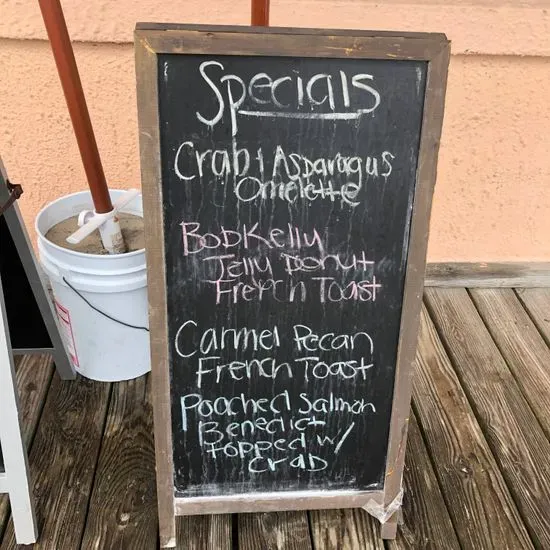 Specials
Crab + Asparagus
Omelette
BobKelly
Jelly Donut
French Toast
Carmel Pecan
French Toast
Poached Salmon
Benedict
topped w/
Crab